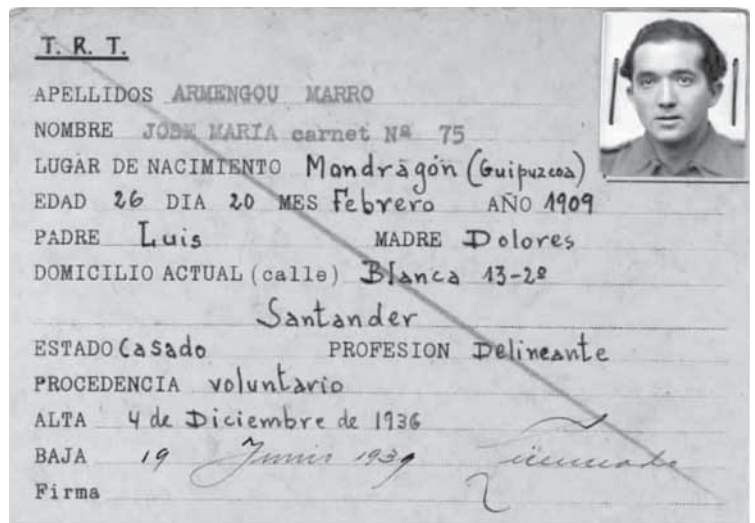 T. R. T.
APELLIDOS ARMENGOU MARRO
NOMBRE JOSE MARIA carnet Nº 75
LUGAR DE NACIMIENTO Mondragón (Guipuzcoa)
EDAD 26 DIA 20 MES Febrero AÑO 1909
PADRE Luis MADRE Dolores
DOMICILIO ACTUAL (calle) Blanca 13-2º
Santander
ESTADO Casado PROFESION Delineante
PROCEDENCIA voluntario
ALTA 4 de Diciembre de 1936
BAJA 19 Junio 1939 Licenciado
Firma